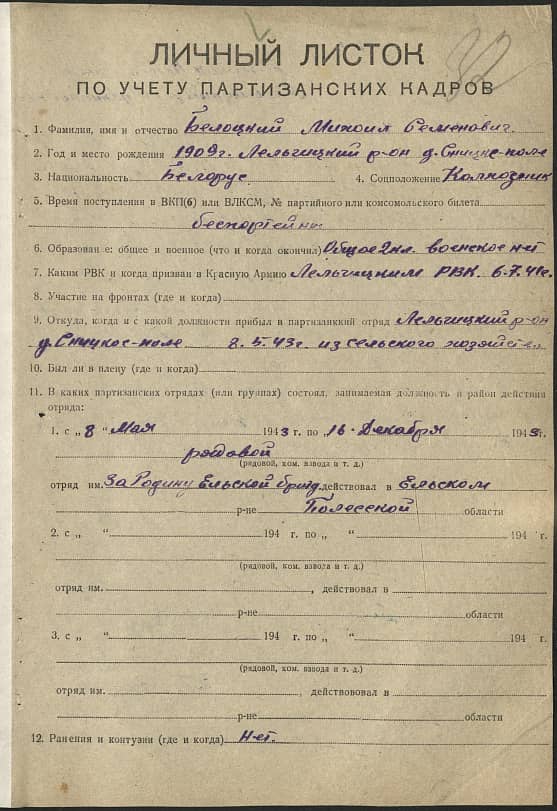 32
ЛИЧНЫЙ ЛИСТОК
ПО УЧЕТУ ПАРТИЗАНСКИХ КАДРОВ
1. Фамилия, имя и отчество Белоцкий Михаил Семенович.
2. Год и место рождения 1909г. Лельчицкий р-он д. Сницке-поле
3. Национальность Белорус 4. Соцположение Колхозник
5. Время поступления в ВКП(б) или ВЛКСМ, № партийного или комсомольского билета
беспортейны
6. Образован е: общее и военное (что и когда окончил) Общое 2 кл. военское нет
7. Каким РВК и когда призван в Красную Армию Лельчицким РВК. 6.7.41г.
8. Участие на фронтах (где и когда)
9. Откуда, когда и с какой должности прибыл в партизанкий отряд Лельчицкий р-он
д. Сницкое-поле 8.5.43г. из сельского хозяйства
10. Был ли в плену (где и когда)
11. В каких партизанских отрядах (или группах) состоял, занимаемая должность и район действия
отряда:
1. с „ 8 “ Мая 1943 г. по „ 16 “ Декабря 1943 г.
рядовой
(рядовой, ком. взвода и т. д.)
отряд им. За Родину Ельской бригд. действовал в Ельском
р-не Полесской области
2. с „ “ 194 г. по „ “ 194 г.
(рядовой, ком. взвода и т. д.)
отряд им. , действовал в
р-не области
3. с „ “ 194 г. по „ “ 194 г.
(рядовой, ком. взвода и т. д.)
отряд им. , действововал в
р-не области
12. Ранения и контузии (где и когда) Нет.